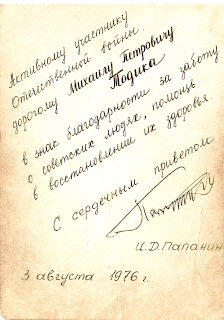 Активному участнику
Отечественной войны
дорогому Михаилу Петровичу
Тодика
в знак благодарности за заботу
о советских людях, помощь
в восстановлении их здоровья
С сердечным приветом
И.Д. Папанин
3 августа 1976 г.